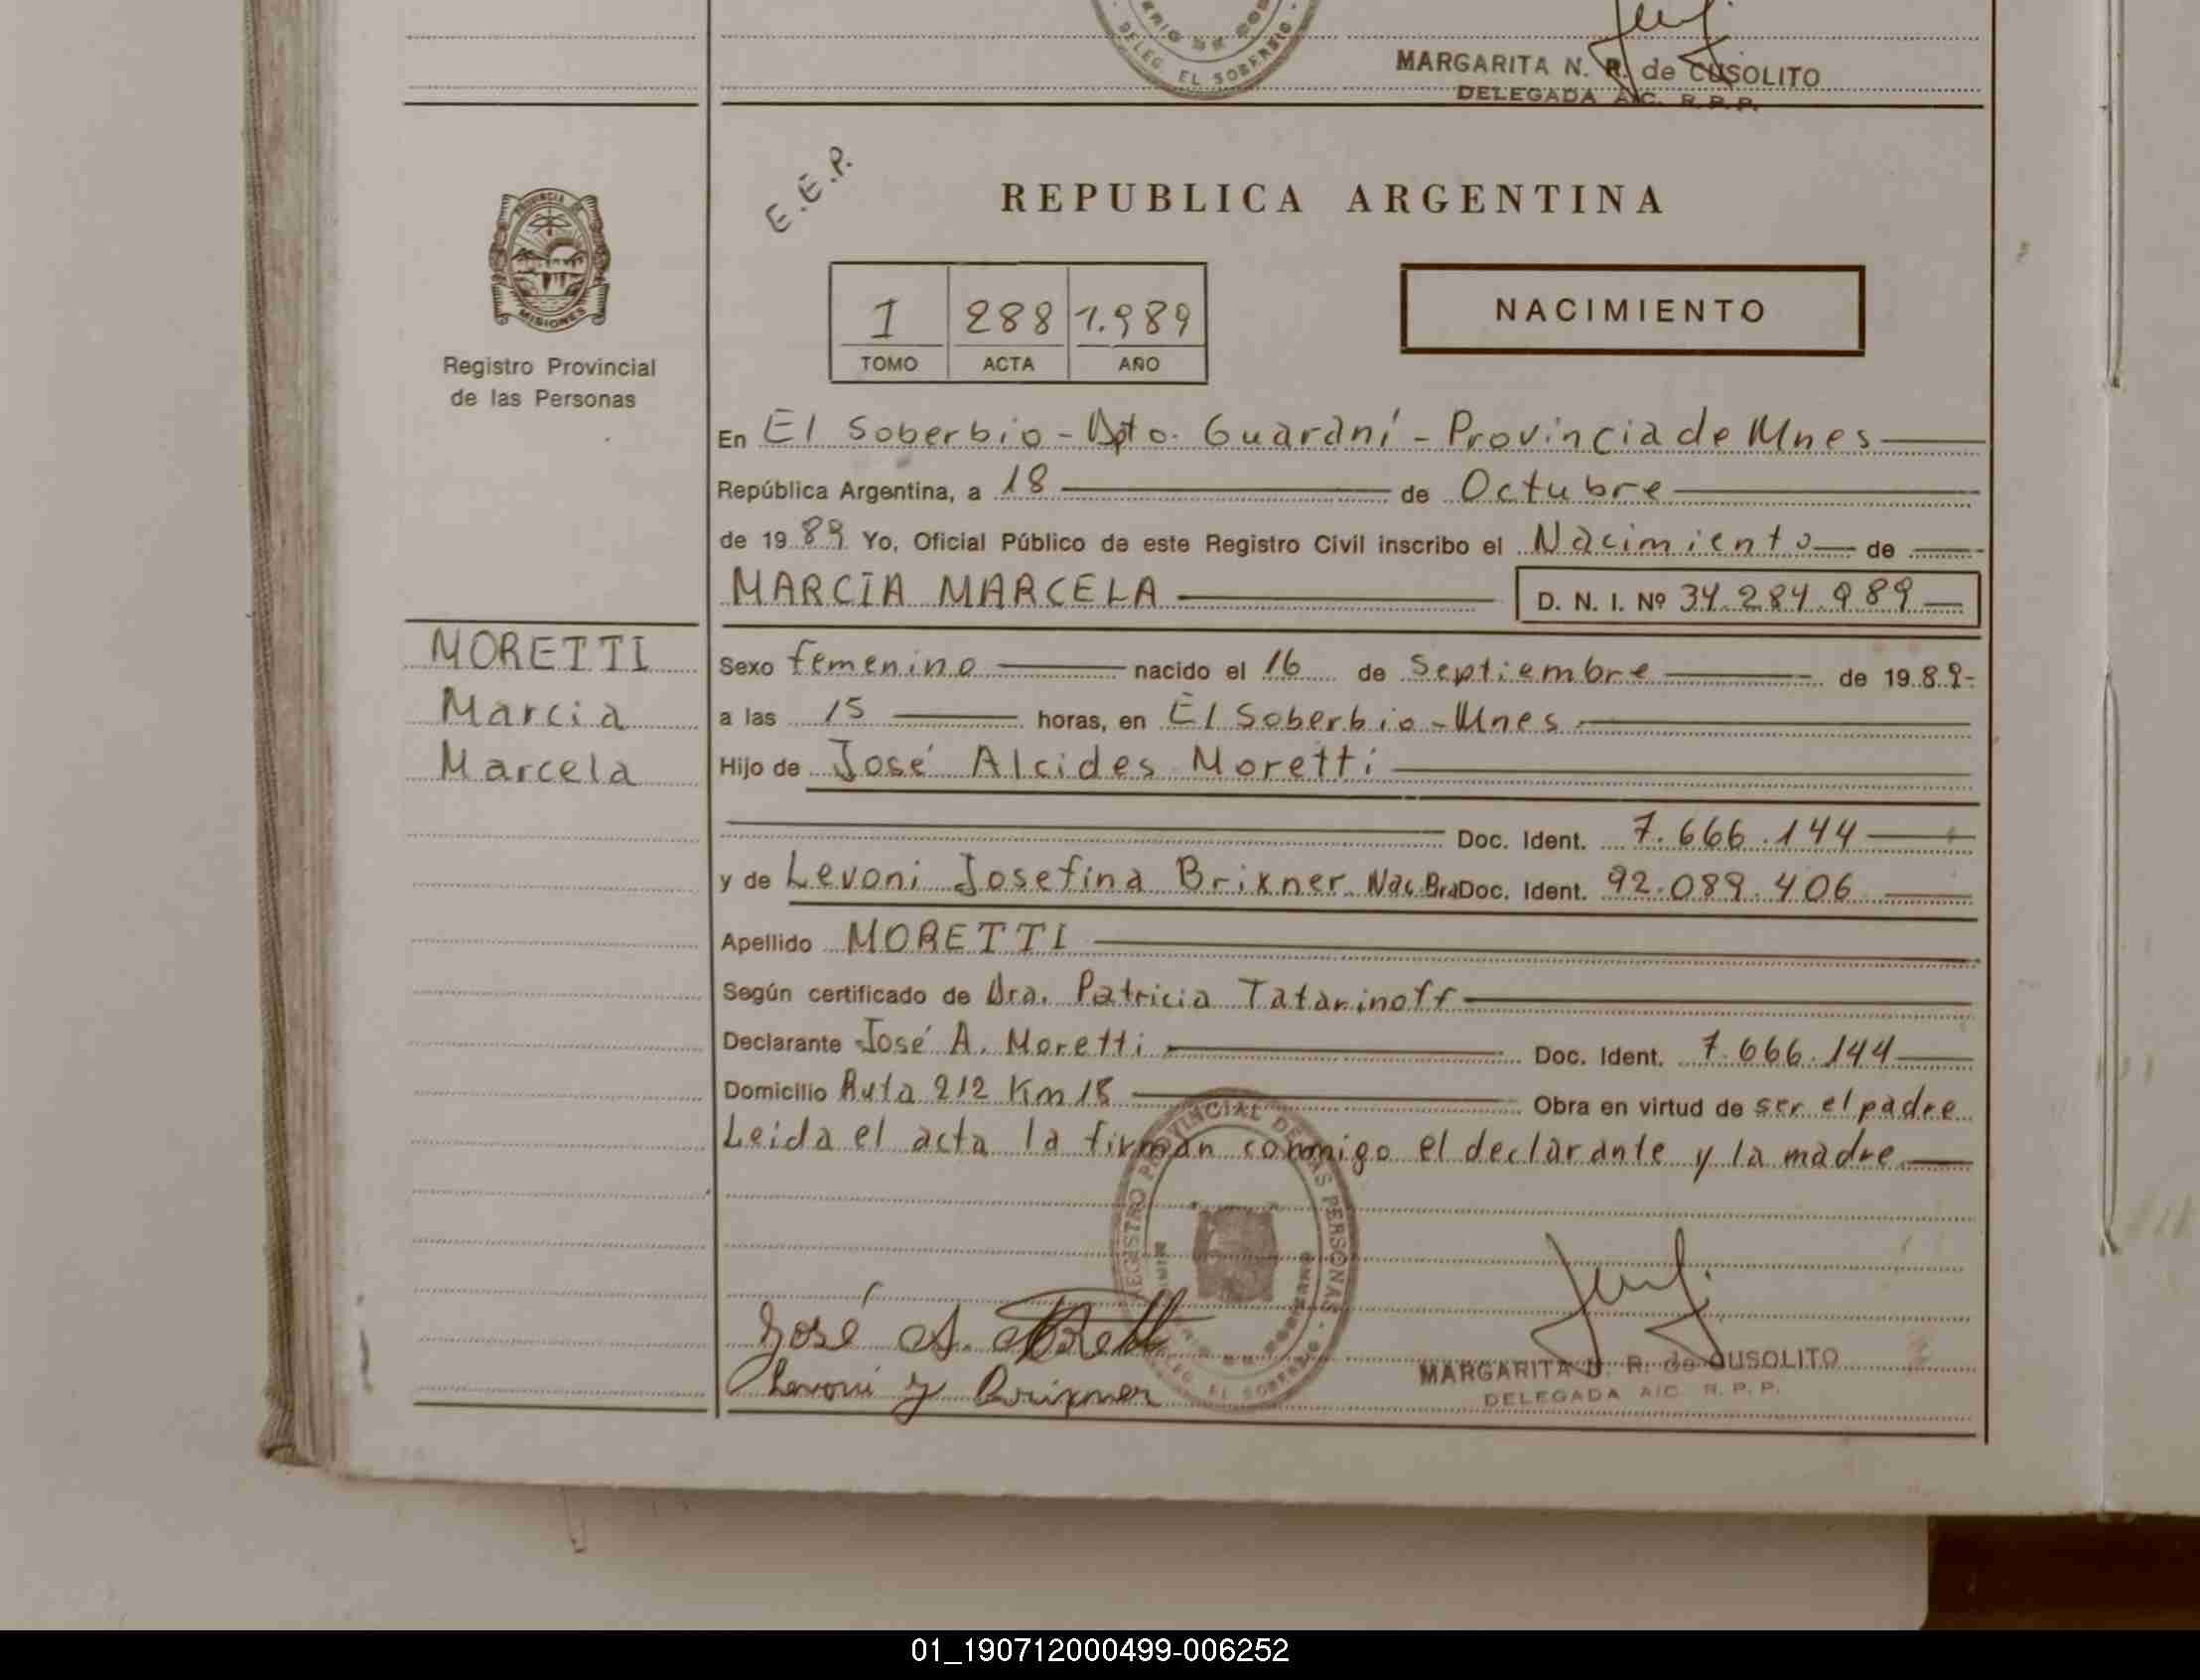 DELEG. EL SOBERBIO
MARGARITA N. R. de CUSOLITO
DELEGADA A/C. R. P. P.
E.E.P.
REPUBLICA ARGENTINA
PROVINCIA DE
MISIONES
Registro Provincial
de las Personas
1 288 1.989
TOMO ACTA AÑO
NACIMIENTO
En El Soberbio - Dpto. Guaraní - Provincia de Mnes
República Argentina, a 18 de Octubre
de 19 89 Yo, Oficial Público de este Registro Civil inscribo el Nacimiento de
MARCIA MARCELA D. N. I. Nº 34.284.989
MORETTI
Marcia
Marcela
Sexo femenino nacido el 16 de Septiembre de 19 89-
a las 15 horas, en El Soberbio - Mnes
Hijo de José Alcides Moretti
Doc. Ident. 7.666.144
y de Levoni Josefina Brixner Nac. Bra Doc. Ident. 92.089.406
Apellido MORETTI
Según certificado de Dra. Patricia Tatarinoff
Declarante José A. Moretti Doc. Ident. 7.666.144
Domicilio Ruta 212 Km 18 Obra en virtud de ser el padre
Leida el acta la firman conmigo el declarante y la madre
REGISTRO PROVINCIAL DE LAS PERSONAS
DELEG. EL SOBERBIO
José A. Moretti
Levoni J Brixner
MARGARITA N. R. de CUSOLITO
DELEGADA A/C R. P. P.
01_190712000499-006252